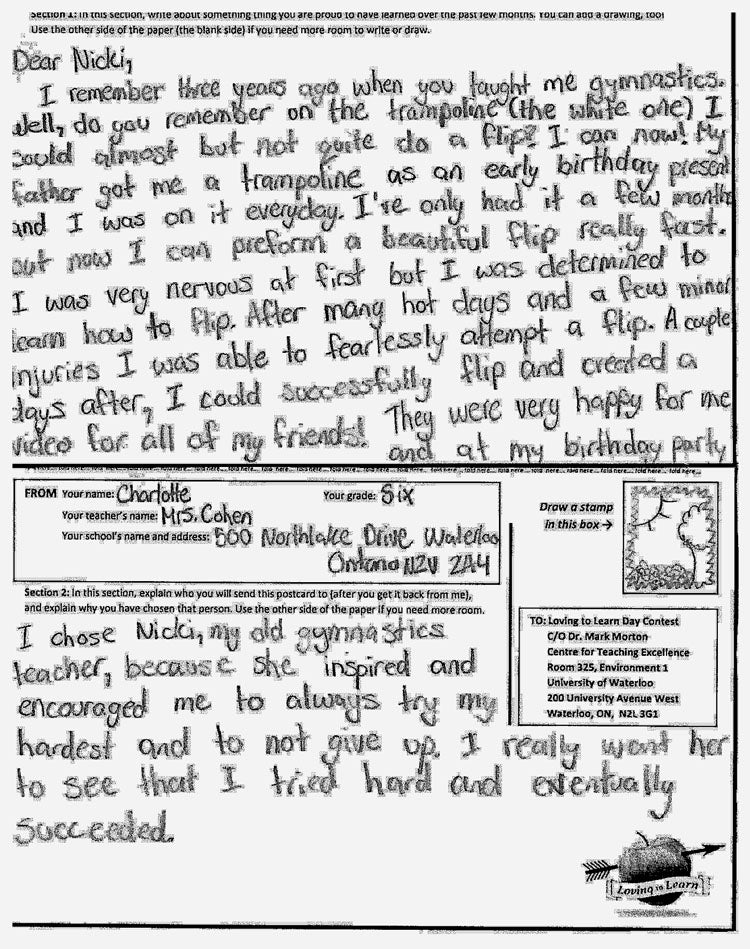 Section 1: In this section, write about something thing you are proud to have learned over the past few months. You can add a drawing, too!
Use the other side of the paper (the blank side) if you need more room to write or draw.
Dear Nicki,
I remember three years ago when you taught me gymnastics.
Well, do you remember on the trampoline (the white one) I
could almost but not quite do a flip? I can now! My
father got me a trampoline as an early birthday present
and I was on it everyday. I've only had it a few months
but now I can preform a beautiful flip really fast.
I was very nervous at first but I was determined to
learn how to flip. After many hot days and a few minor
injuries I was able to fearlessly attempt a flip. A couple
days after, I could successfully flip and created a
video for all of my friends! They were very happy for me
and at my birthday party
FROM Your name: Charlotte Your grade: Six
Your teacher's name: Mrs. Cohen
Your school's name and address: 500 Northlake Drive Waterloo
Ontario N2V 2A4
Draw a stamp
in this box →
Section 2: In this section, explain who you will send this postcard to (after you get it back from me),
and explain why you have chosen that person. Use the other side of the paper if you need more room.
I chose Nicki, my old gymnastics
teacher, because she inspired and
encouraged me to always try my
hardest and to not give up. I really want her
to see that I tried hard and eventually
succeeded.
TO: Loving to Learn Day Contest
C/O Dr. Mark Morton
Centre for Teaching Excellence
Room 325, Environment 1
University of Waterloo
200 University Avenue West
Waterloo, ON, N2L 3G1
Loving to Learn